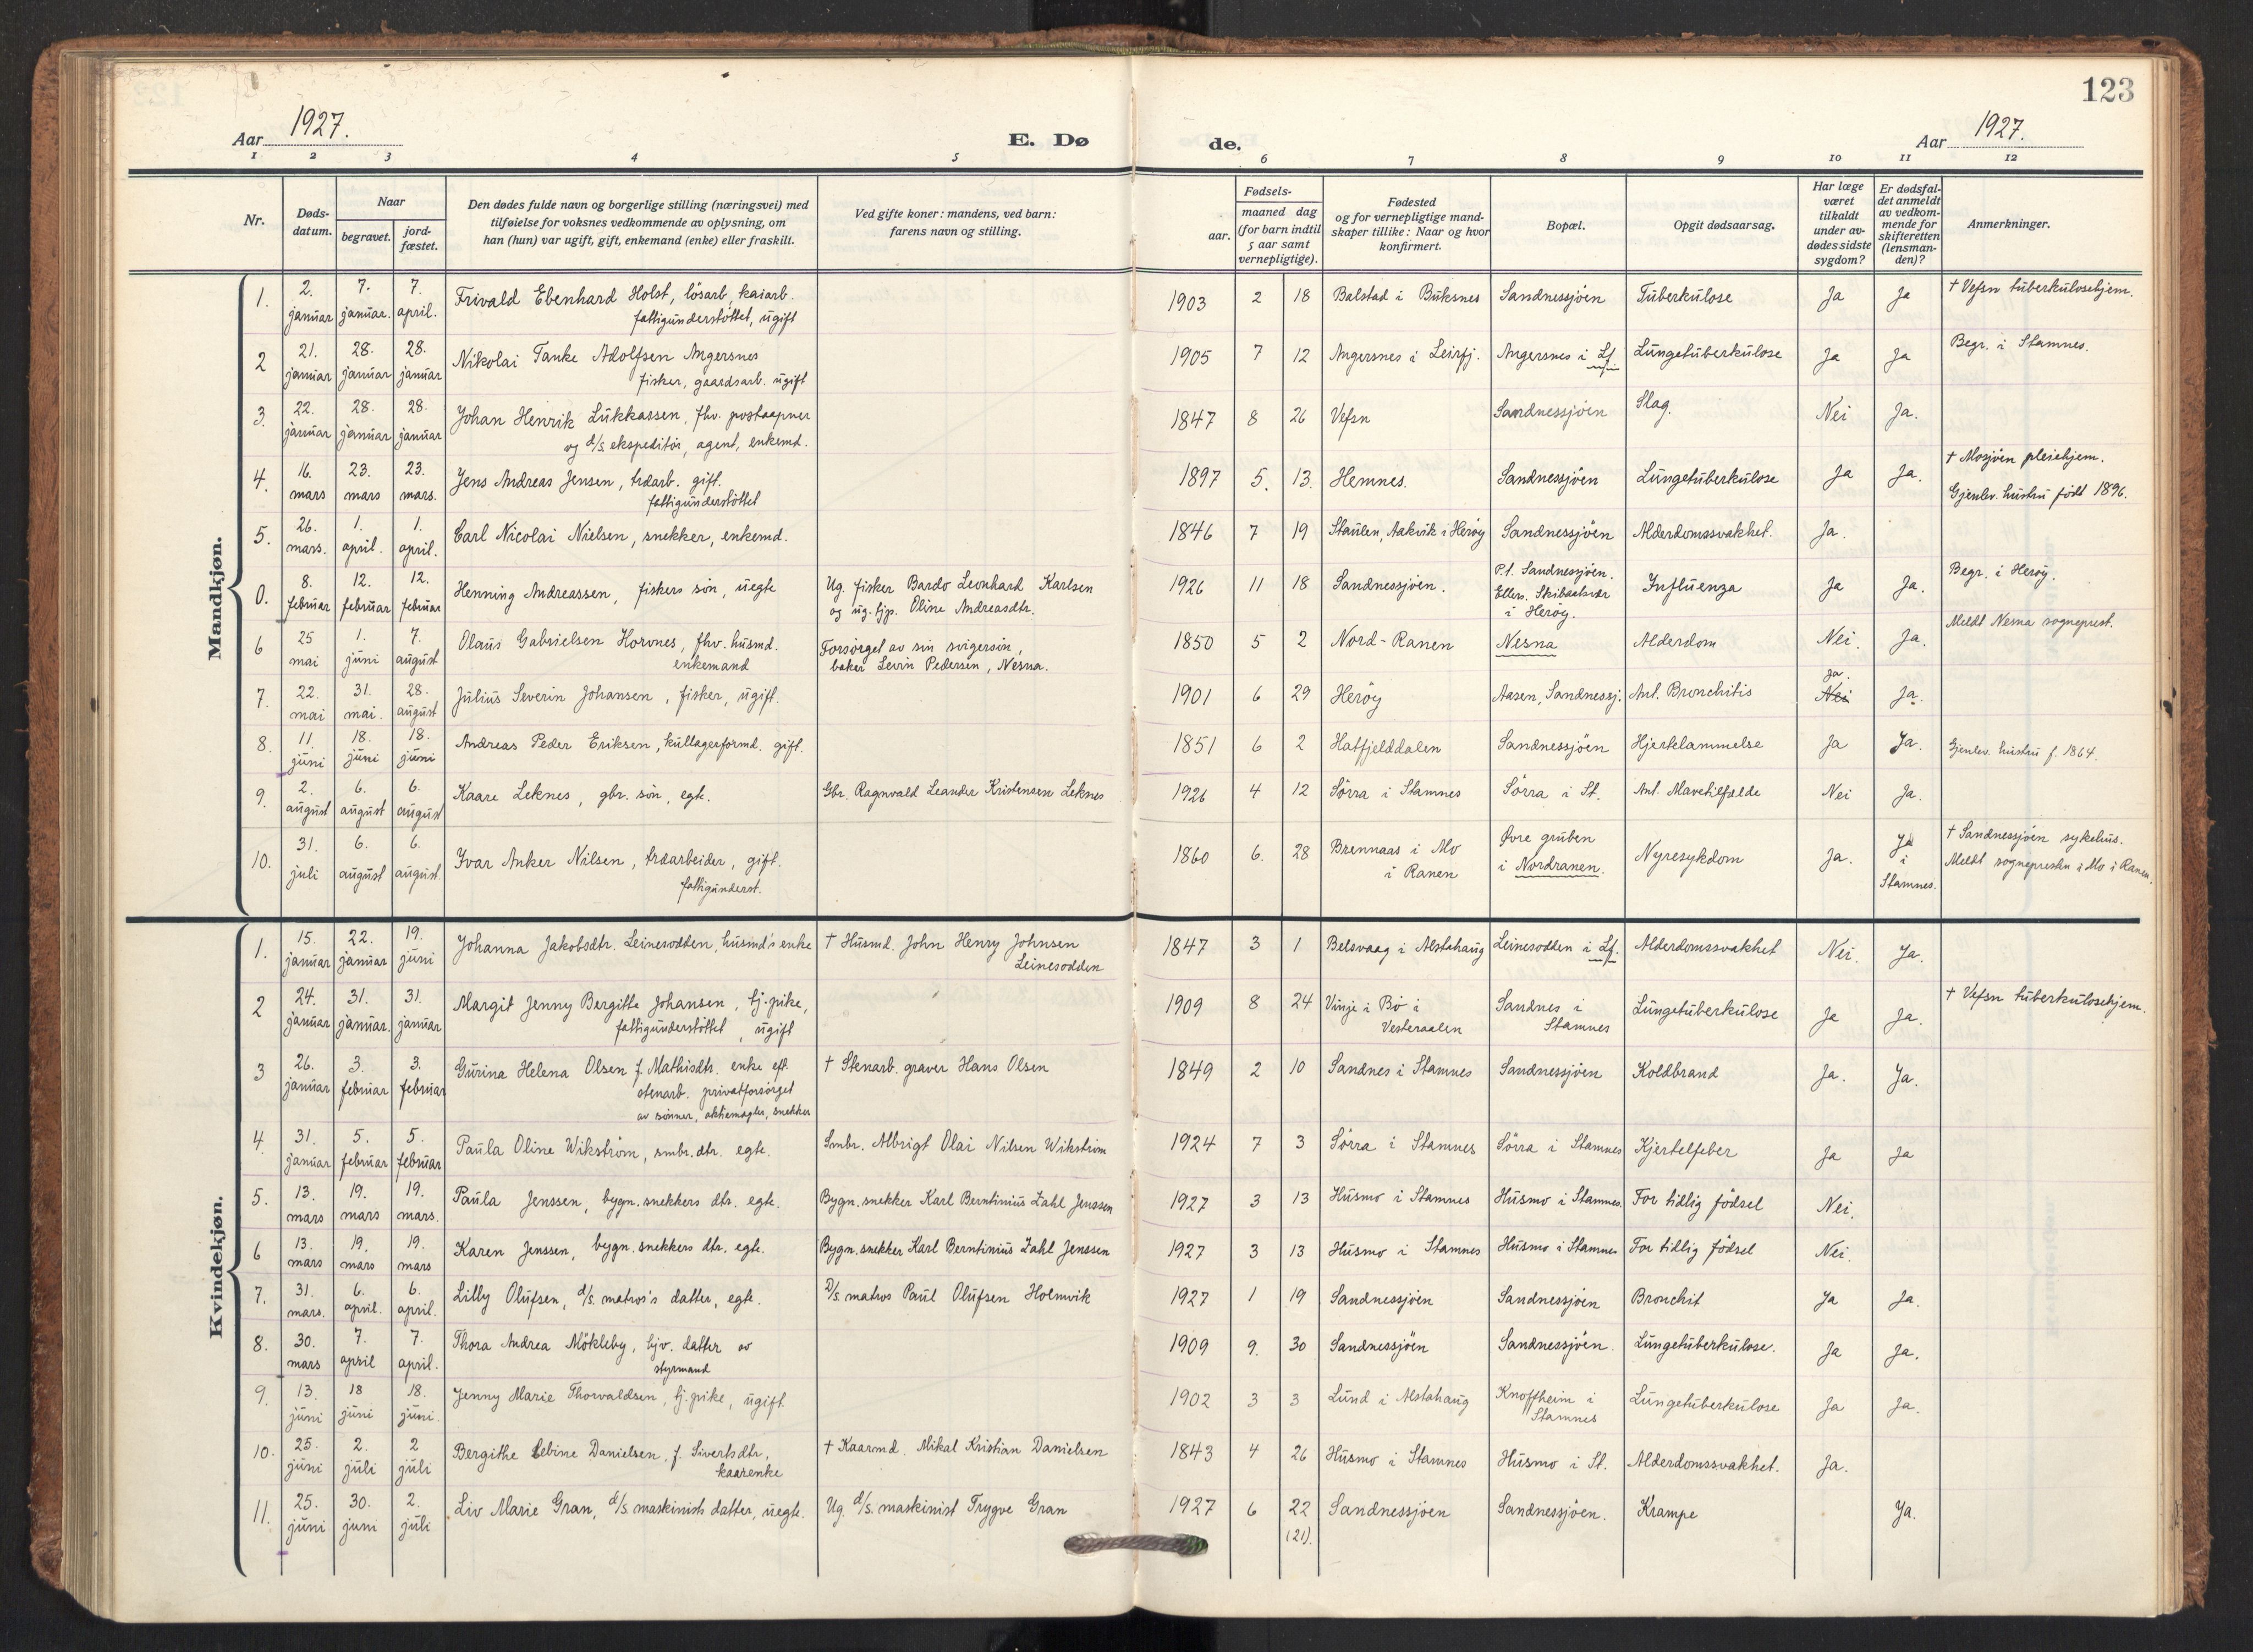 123
Aar 1927.
E. Dø
de.
Aar 1927.
1 2 3 4 5 6 7 8 9 10 11 12
Nr.
Døds-
datum.
Naar
begravet.
jord-
fæstet.
Den dødes fulde navn og borgerlige stilling (næringsvei) med
tilføielse for voksnes vedkommende av oplysning, om
han (hun) var ugift, gift, enkemand (enke) eller fraskilt.
Ved gifte koner: mandens, ved barn:
farens navn og stilling.
Fødsels-
aar.
maaned dag
(for barn indtil
5 aar samt
vernepligtige).
Fødested
og for vernepligtige mand-
skaper tillike: Naar og hvor
konfirmert.
Bopæl.
Opgit dødsaarsag.
Har læge
været
tilkaldt
under av-
dødes sidste
sygdom?
Er dødsfal-
det anmeldt
av vedkom-
mende for
skifteretten
(lensman-
den)?
Anmerkninger.
Mandkjøn.
1. 2. januar 7. januar. 7. april. Frivald Ebenhard Holst, løsarb, kaiarb.
fattigunderstøttet, ugift
1903 2 18 Balstad i Buksnes Sandnessjøen Tuberkulose Ja Ja † Vefsn tuberkulosehjem.
2 21. januar 28. januar 28. januar Nikolai Tanke Adolfsen Angersnes
fisker, gaardsarb. ugift
1905 7 12 Angersnes i Leirfj. Angersnes i Lf. Lungetuberkulose Ja Ja Begr. i Stamnes.
3. 22. januar 28. januar 28. januar Johan Henrik Lukkassen, fhv. postaapner
og d/s. ekspeditør, agent, enkemd.
1847 8 26 Vefsn Sandnessjøen Slag. Nei Ja.
4. 16. mars 23. mars 23. mars. Jens Andreas Jensen, trdarb. gift.
fattigunderstøttet
1897 5. 13. Hemnes. Sandnessjøen Lungetuberkulose Ja Ja. † Mosjøen pleiehjem.
Gjenlev. hustru født 1896.
5. 26. mars. 1. april. 1. april. Carl Nicolai Nielsen, snekker, enkemd.
1846 7 19 Staulen, Aakvik i Herøy Sandnessjøen Alderdomssvakhet. Ja.
0. 8. februar 12. februar 12. februar Henning Andreassen, fiskers søn, uegte
Ug. fisker Bardo Leonhard Karlsen
og ug. tjp. Oline Andreasdtr.
1926 11 18 Sandnessjøen. P.t. Sandnessjøen.
Ellers. Skibaatsvær
i Herøy.
Influenza Ja Ja. Begr. i Herøy.
6 25 mai 1. juni 7. august Olaus Gabrielsen Horvnes, fhv. husmd.
enkemand
Forsørget av sin svigersøn,
baker Levin Pedersen, Nesna.
1850 5 2 Nord-Ranen Nesna Alderdom Nei. Ja. Meldt Nesna sogneprest.
7. 22. mai 31. mai. 28. august Julius Severin Johansen, fisker, ugift.
1901 6 29 Herøy Aasen, Sandnessj. Ant. Bronchitis Ja. Nei Ja.
8. 11. juni 18. juni 18. juni Andreas Peder Eriksen, kullagerformd. gift.
1851 6 2 Hatfjelddalen Sandnessjøen Hjertelammelse Ja Ja. Gjenlev. hustru f. 1864.
9. 2. august 6. august 6. august Kaare Leknes, gbr. søn, egte.
Gbr. Ragnvald Leander Kristensen Leknes
1926 4 12 Sørra i Stamnes Sørra i St. Ant. Mavetilfælde Nei Ja.
10. 31. juli 6. august 6. august. Ivar Anker Nilsen, trdarbeider, gift.
fattigunderst.
1860 6. 28 Brennaas i Mo
i Ranen
Øvre gruben
i Nordranen.
Nyresykdom Ja. Ja
i
Stamnes.
† Sandnessjøen sykehus.
Meldt sognepresten i Mo i Ranen.
Kvindekjøn.
1. 15. januar 22. januar 19. juni Johanna Jakobsdtr. Leinesodden, husmd's enke
† Husmd. John Henry Johnsen
Leinesodden
1847 3 1 Belsvaag i Alstahaug Leinesodden i Lf. Alderdomssvakhet Nei. Ja.
2 24. januar 31. januar. 31. januar Margit Jenny Bergitte Johansen, tj. pike,
fattigunderstøttet, ugift
1909 8 24 Vinje i Bø i
Vesteraalen
Sandnes i
Stamnes
Lungetuberkulose Ja Ja. † Vefsn tuberkulosehjem.
3 26. januar 3. februar 3. februar Gurina Helena Olsen f. Mathisdtr. enke eft.
stenarb. privatforsørget
av sønner, aktiemægler, snekker
† Stenarb. graver Hans Olsen
1849 2 10 Sandnes i Stamnes Sandnessjøen Koldbrand Ja. Ja.
4. 31. januar 5. februar 5. februar Paula Oline Wikstrøm, smbr. dtr. egte.
Smbr. Albrigt Olai Nilsen Wikstrøm
1924 7 3 Sørra i Stamnes Sørra i Stamnes Kjertelfeber Ja Ja
5. 13. mars 19. mars 19. mars. Paula Jenssen, bygn. snekkers dtr. egte.
Bygn. snekker Karl Berntinius Zahl Jenssen
1927 3 13 Husmo i Stamnes Husmo i Stamnes. For tidlig fødsel Nei.
6 13. mars 19. mars 19. mars Karen Jenssen, bygn. snekkers dtr. egte.
Bygn. snekker Karl Berntinius Zahl Jenssen
1927 3 13 Husmo i Stamnes Husmo i Stamnes For tidlig fødsel Nei.
7. 31. mars. 6. april. 6. april. Lilly Olufsen, d/s. matros's datter, egte.
D/s. matros Paul Olufsen Holmvik
1927 1 19 Sandnessjøen Sandnessjøen Bronchit Ja Ja.
8. 30. mars 7. april 7. april. Thora Andrea Møkleby, hjv. datter av
styrmand
1909 9. 30 Sandnessjøen Sandnessjøen. Lungetuberkulose. Ja Ja.
9. 13. juni 18 juni 18. juni. Jenny Marie Thorvaldsen, tj. pike, ugift.
1902 3 3 Lund i Alstahaug Knoffheim i
Stamnes
Lungetuberkulose Ja Ja.
10. 25. juni 2. juli 2 juli Bergithe Sebine Danielsen, f. Sivertsdtr,
kaarenke
† Kaarmd. Mikal Kristian Danielsen
1843 4 26 Husmo i Stamnes Husmo i St. Alderdomssvakhet. Ja.
11. 25. juni 30. juni 2. juli Liv Marie Gran, d/s. maskinists datter, uegte.
Ug. d/s. maskinist Trygve Gran
1927 6 22
(21).
Sandnessjøen Sandnessjøen. Krampe Ja.